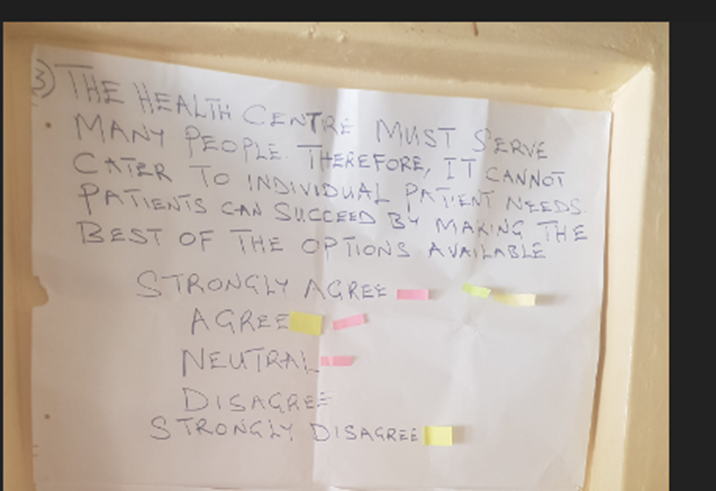 3) THE HEALTH CENTRE MUST SERVE
MANY PEOPLE. THEREFORE, IT CANNOT
CATER TO INDIVIDUAL PATIENT NEEDS.
PATIENTS CAN SUCCEED BY MAKING THE
BEST OF THE OPTIONS AVAILABLE
STRONGLY AGREE
AGREE
NEUTRAL
DISAGREE
STRONGLY DISAGREE